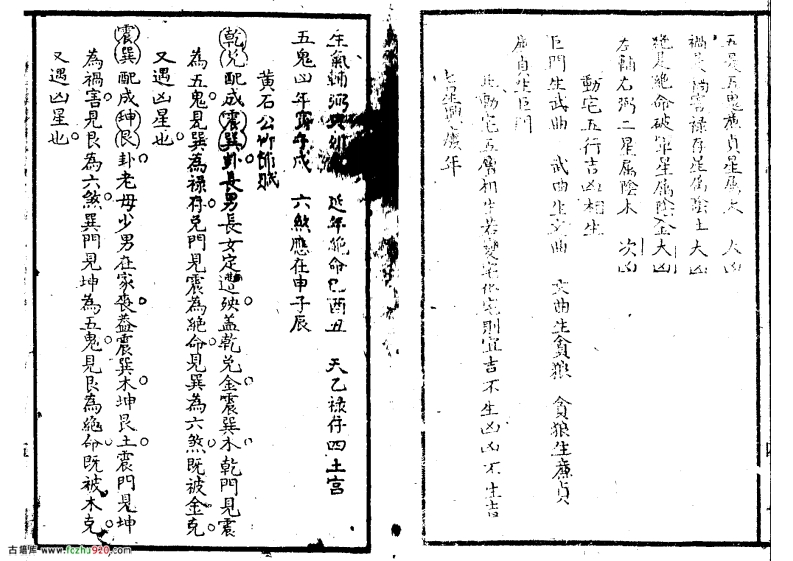 五晃五鬼廉貞星屬火 大凶
禍晃禍害祿存星屬陰土大凶
絶晃絶命破軍星屬陰金大凶
左輔右弼二星属陰木 次凶
動宅五行吉凶相生
巨門生武曲 武曲生文曲 文曲生貪狼 貪狼生廉貞
廉貞生巨門
此動宅五層相生若變宅化宅則宜吉不生凶凶不生吉
年
生氣輔弼 延年絶命巳酉丑 天乙祿存四土宫
五鬼凶年 六煞應在申子辰
黄石公竹節賦
乾兌配成震巽卦長男長女定遭殃盖乾兌金震巽木乾門見震
為五鬼見巽為禄存兌門見震為絶命見巽為六煞既被金克
又遇凶星也
震巽配成坤艮卦老母少男在家喪蓋震巽木坤艮土震門見坤
為禍害見艮為六煞巽門見坤為五鬼見艮為絶命既被木克
又遇凶星也
古籍库 www.fczhj920.com